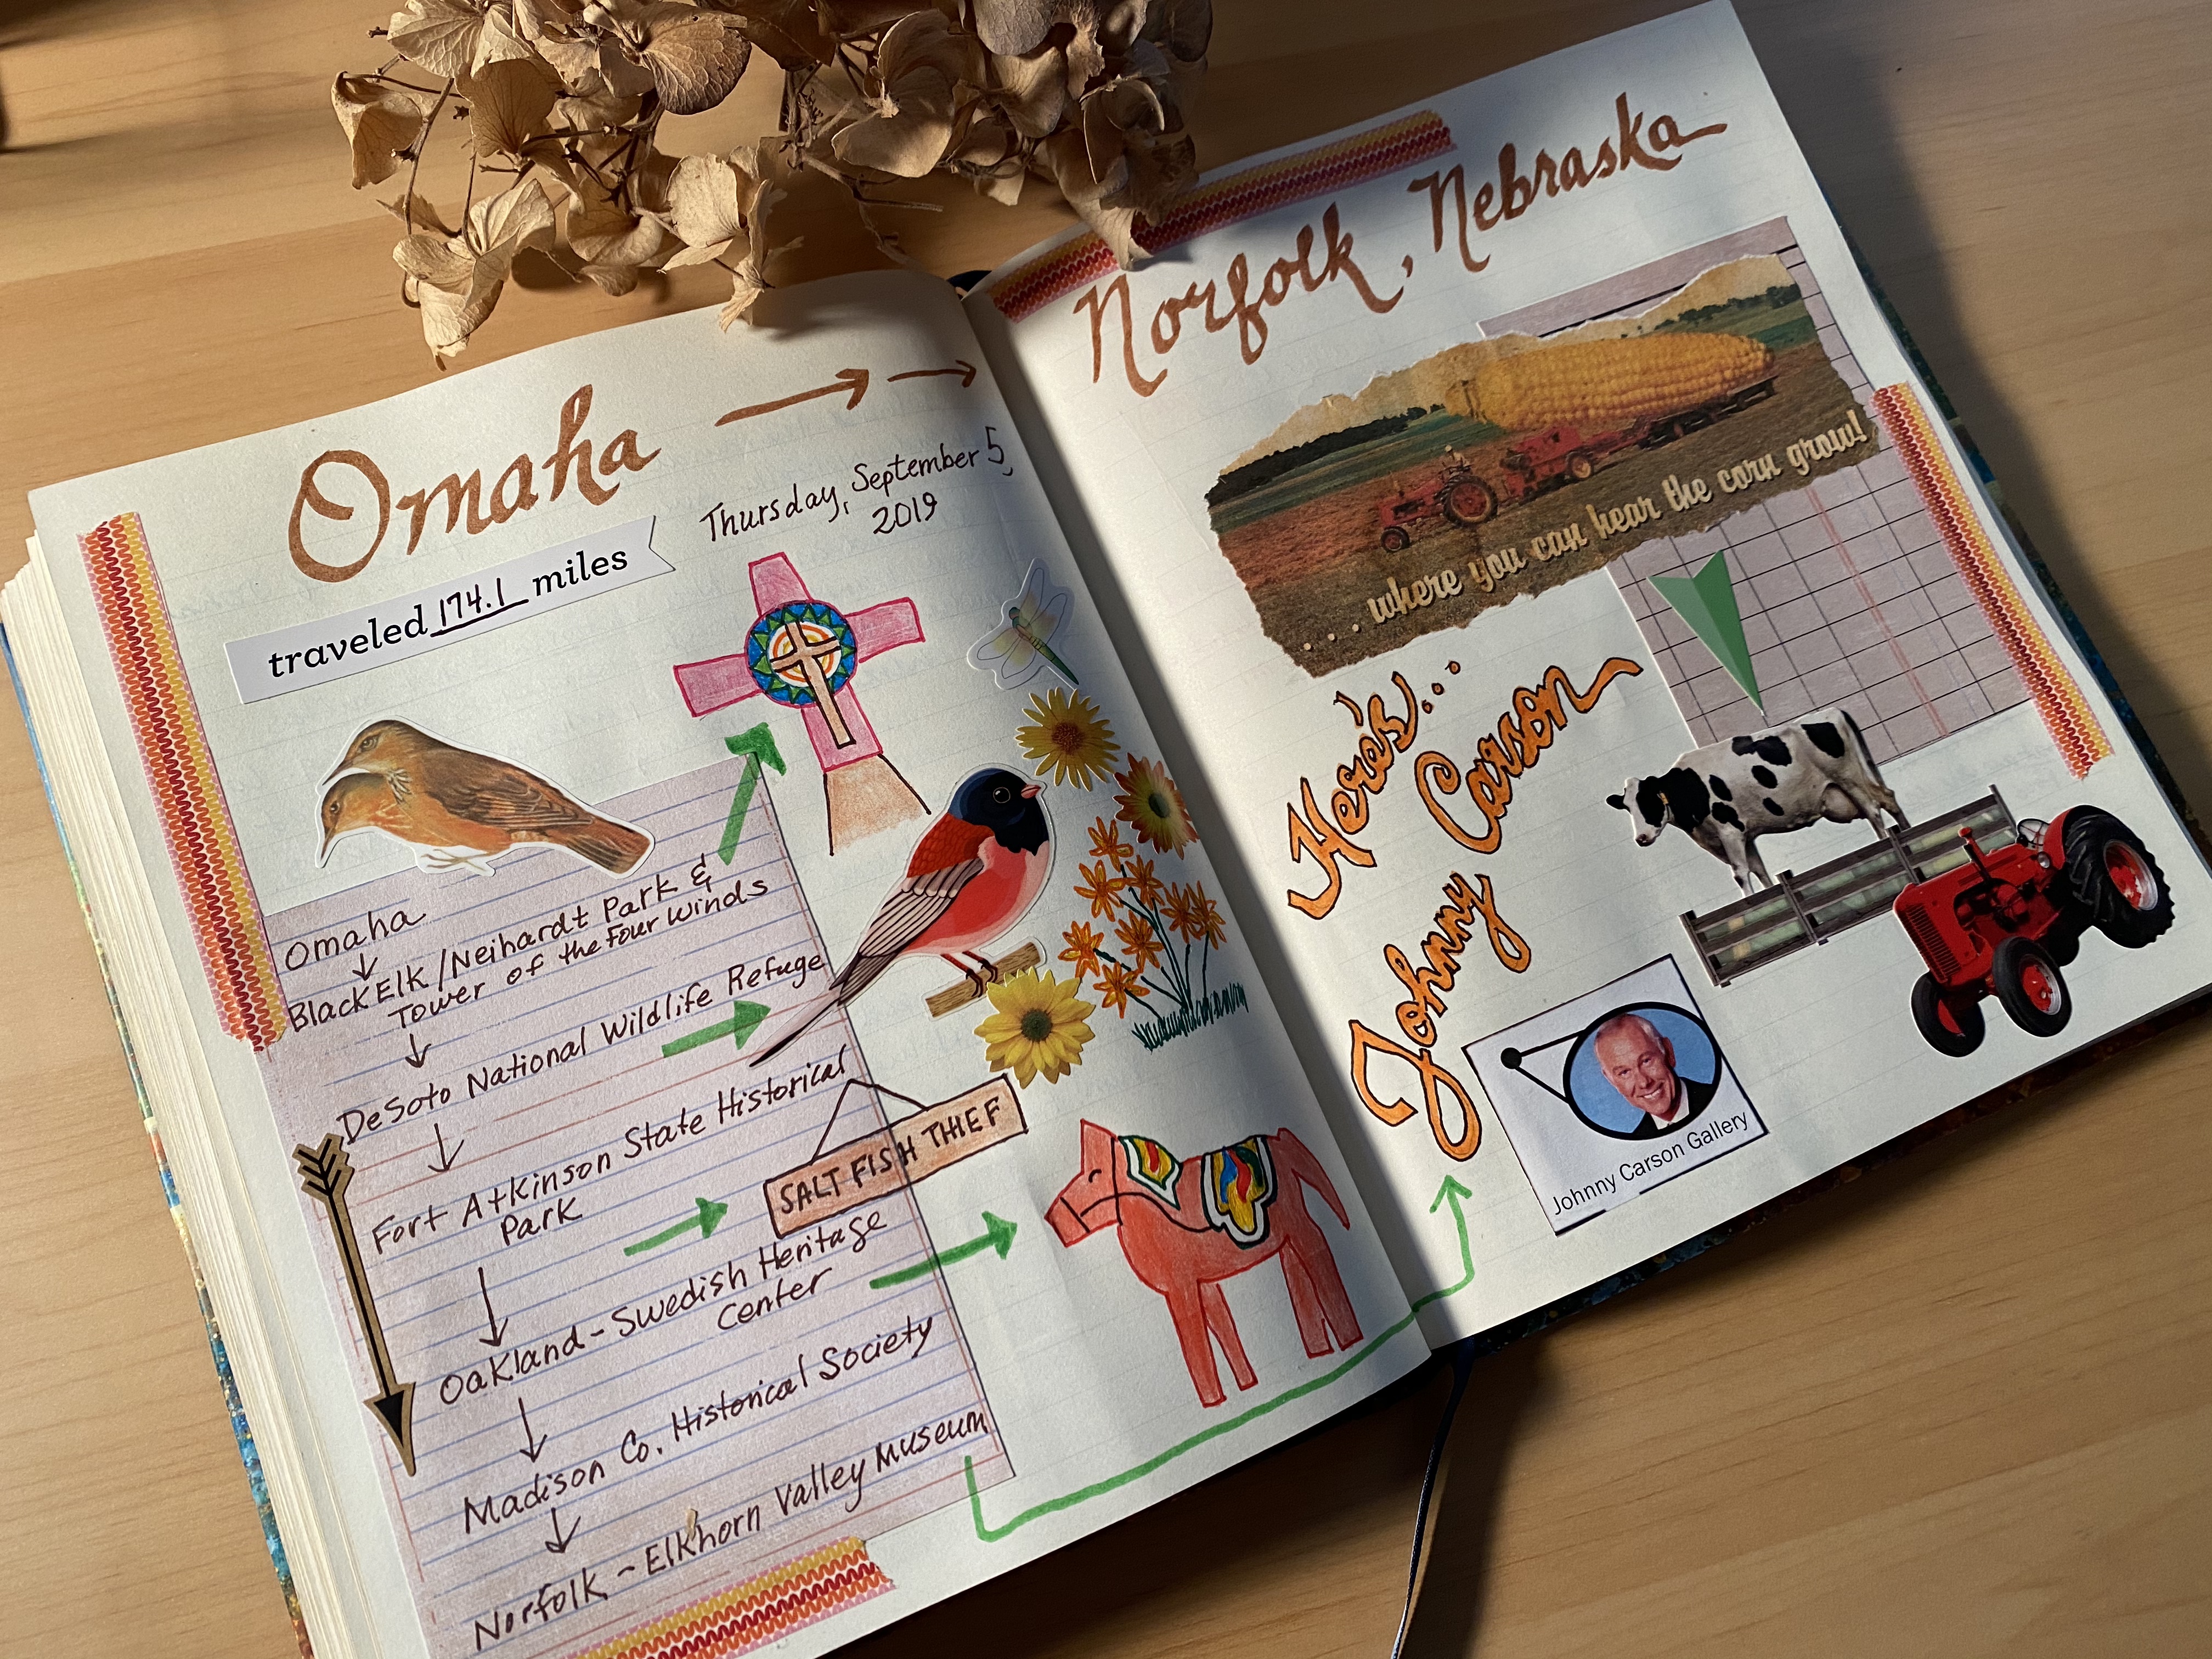 Omaha
Thursday, September 5,
2019
traveled 174.1 miles
Omaha
Black Elk/Neihardt Park &
Tower of the Four Winds
DeSoto National Wildlife Refuge
Fort Atkinson State Historical
Park
SALT FISH THIEF
Oakland - Swedish Heritage
Center
Madison Co. Historical Society
Norfolk - Elkhorn Valley Museum
Norfolk, Nebraska
...where you can hear the corn grow!
Here's...
Johnny Carson
Johnny Carson Gallery